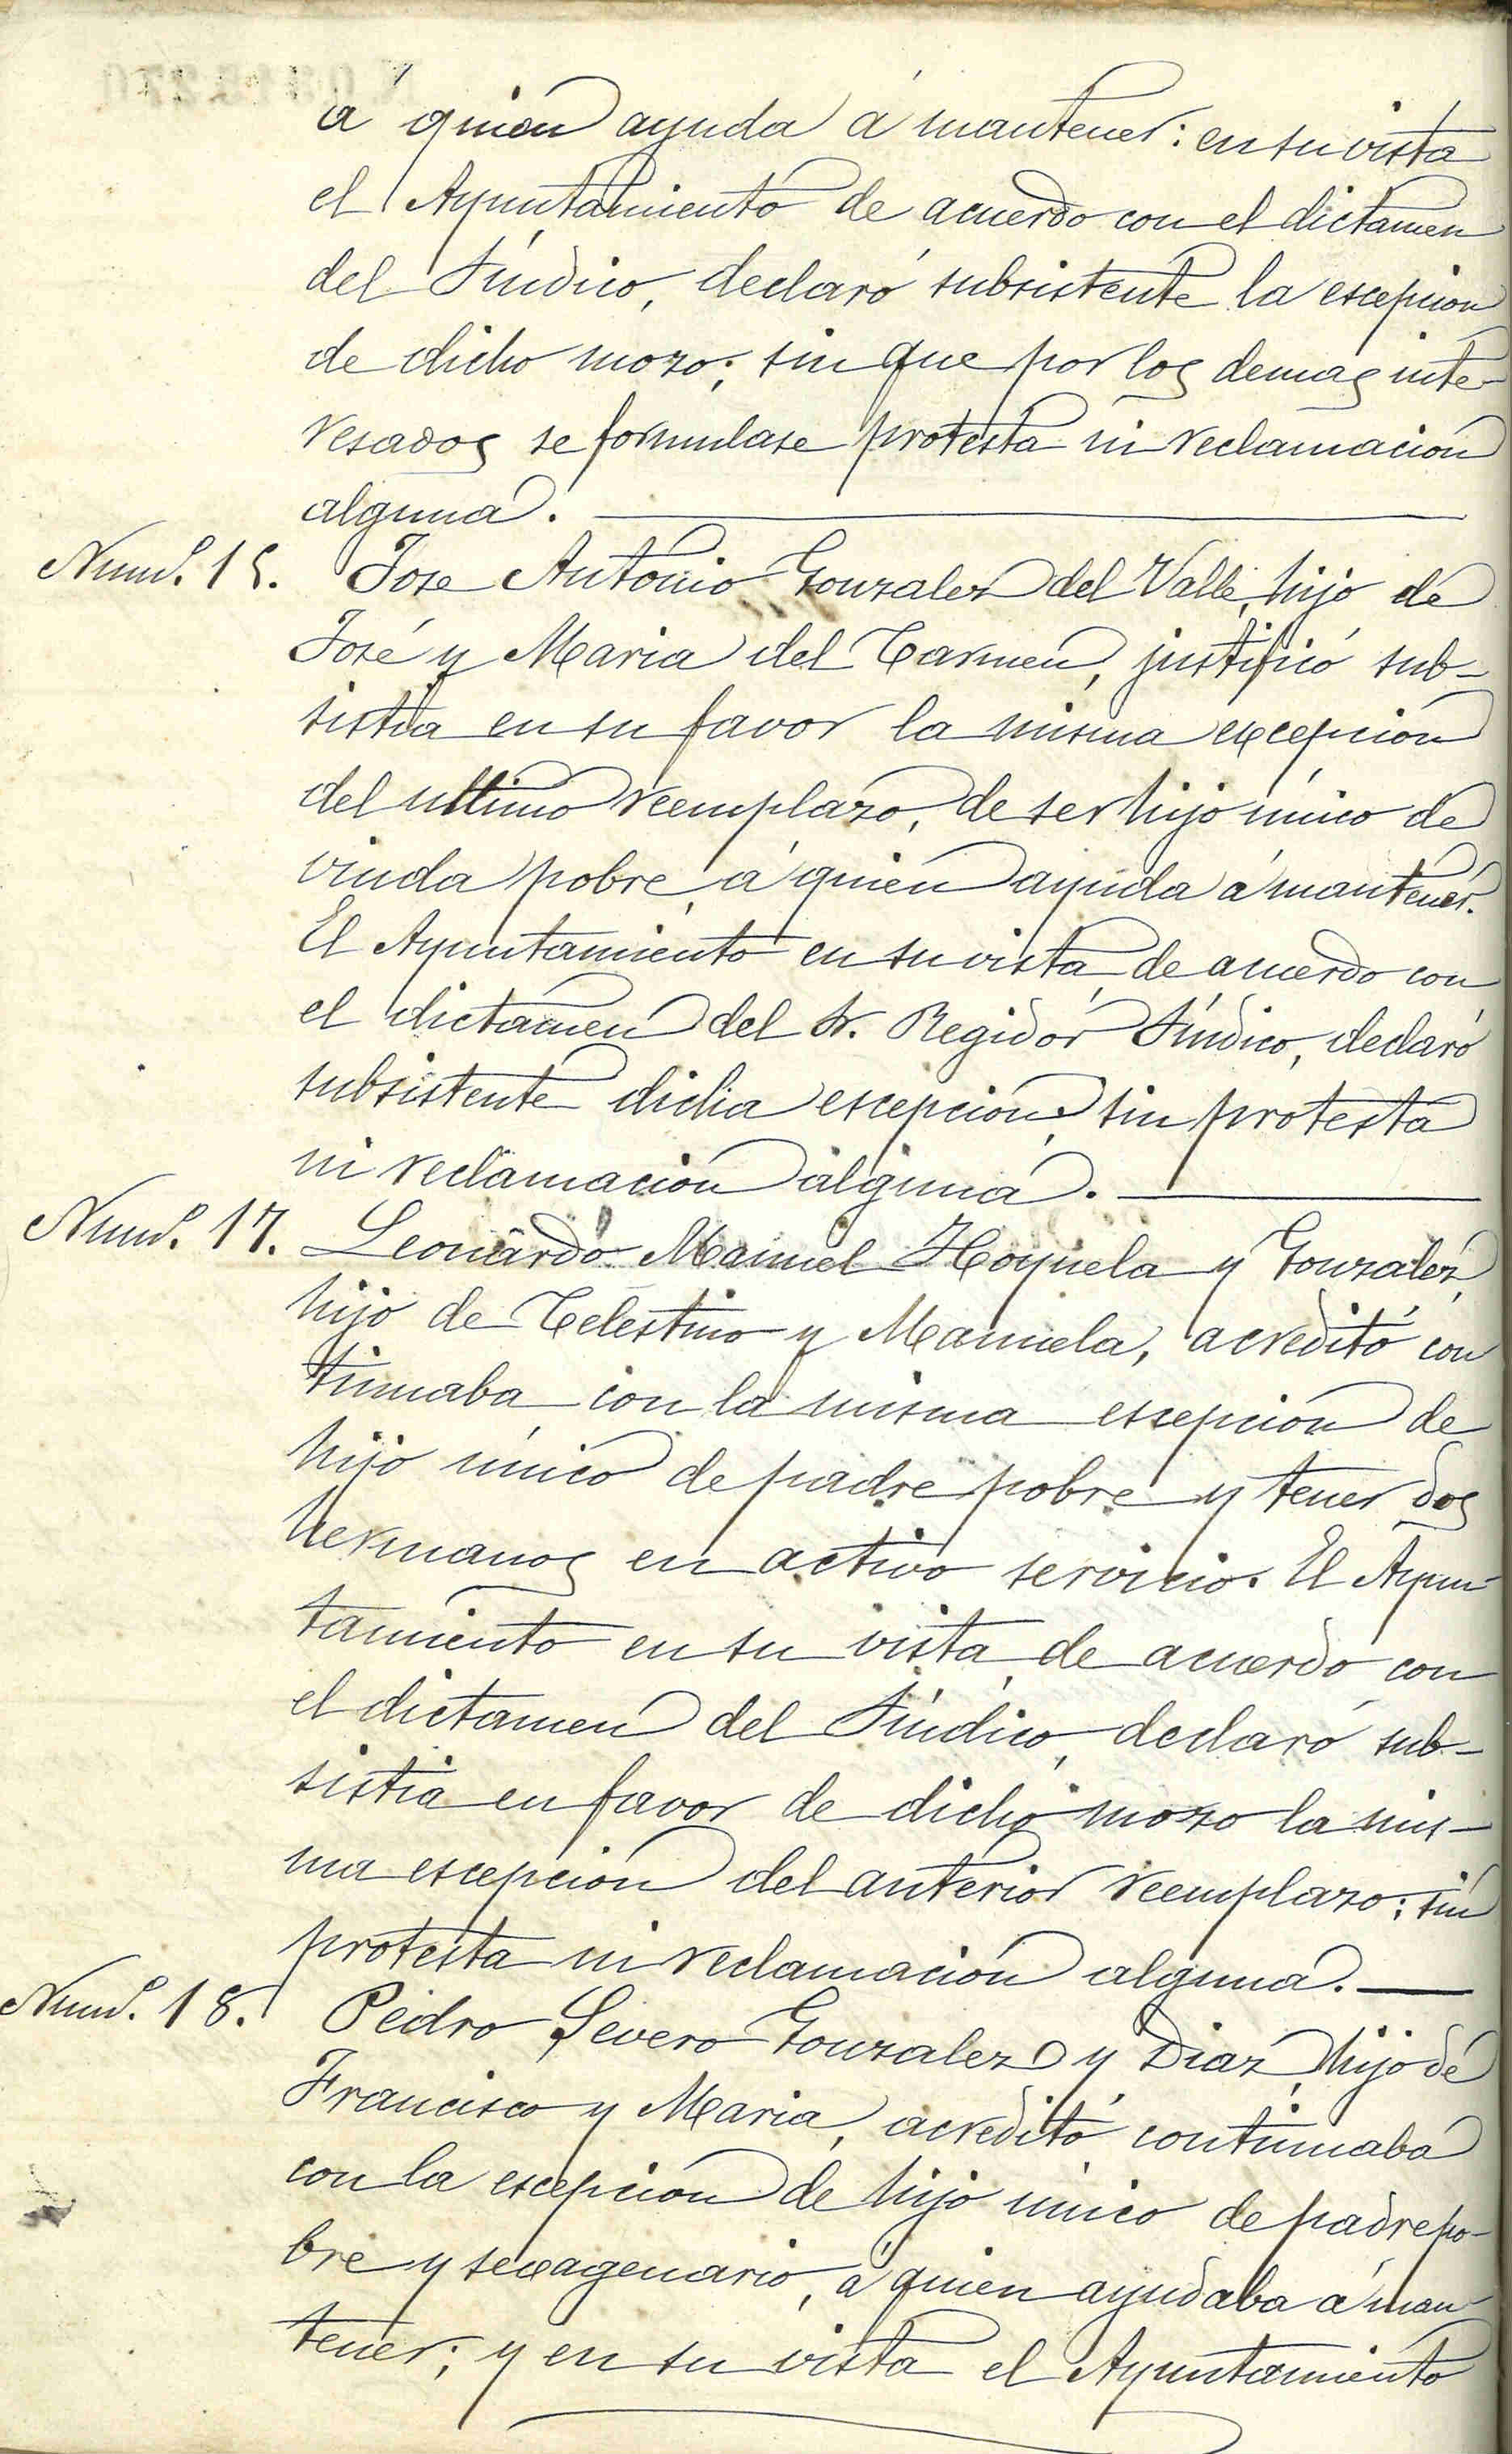 á quien ayuda á mantener: en su vista
el Ayuntamiento de acuerdo con el dictamen
del Síndico, declaró subsistente la escepcion
de dicho mozo; sin que por los demas inte-
resados se formulase protesta ni reclamacion
alguna.
Num.º 15. Jose Antonio Gonzalez del Valle, hijo de
José y Maria del Carmen, justificó sub-
sistia en su favor la misma excepcion
del ultimo reemplazo, de ser hijo único de
viuda pobre, á quien ayuda á mantener.
El Ayuntamiento en su vista, de acuerdo con
el dictamen del Sr. Regidor Síndico, declaró
subsistente dicha escepcion; sin protesta
ni reclamacion alguna.
Num.º 17. Leonardo Manuel Hoyuela y Gonzalez,
hijo de Celestino y Manuela, acreditó con
tinuaba con la misma escepcion de
hijo único de padre pobre y tener dos
hermanos en activo servicio. El Ayun-
tamiento en su vista, de acuerdo con
el dictamen del Síndico, declaró sub-
sistia en favor de dicho mozo la mis-
ma escepcion del anterior reemplazo; sin
protesta ni reclamacion alguna.
Num.º 18. Pedro Severo Gonzalez y Diaz, hijo de
Francisco y Maria, acreditó continuaba
con la escepcion de hijo único de padre po-
bre y sexagenario, á quien ayudaba á man-
tener; y en su vista el Ayuntamiento